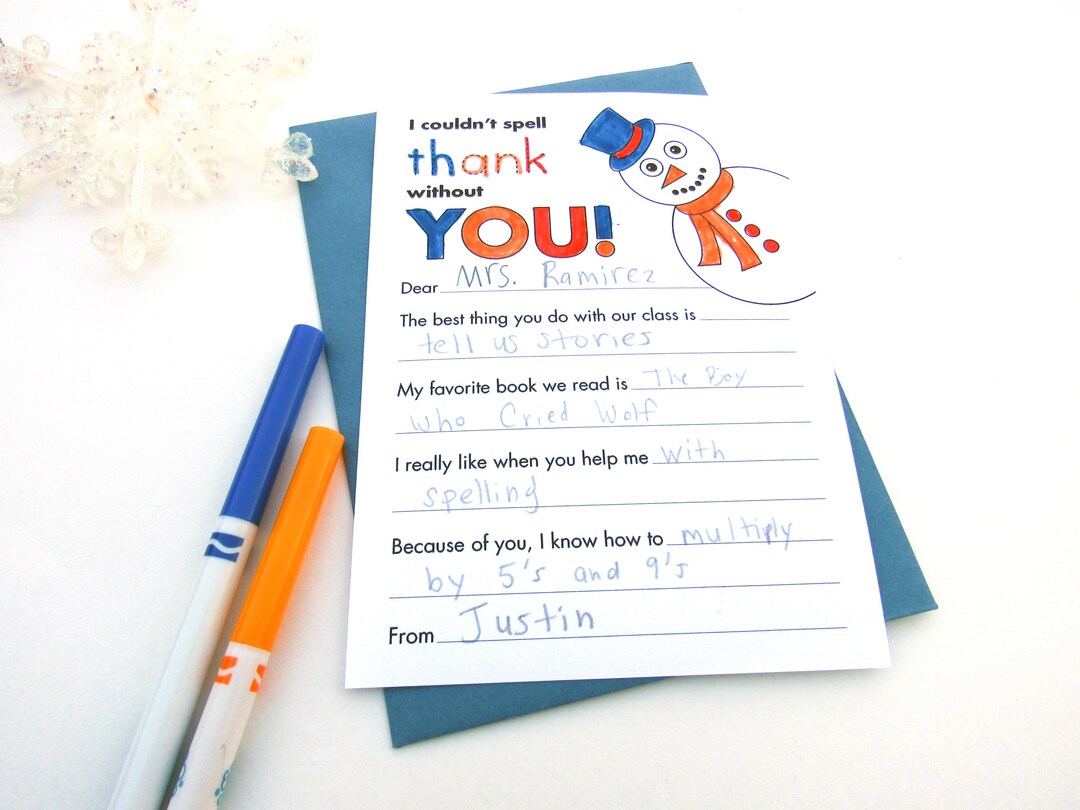 I couldn't spell
thank
without
YOU!
Dear Mrs. Ramirez
The best thing you do with our class is
tell us stories
My favorite book we read is The Boy
Who Cried Wolf
I really like when you help me with
spelling
Because of you, I know how to multiply
by 5's and 9's
From Justin